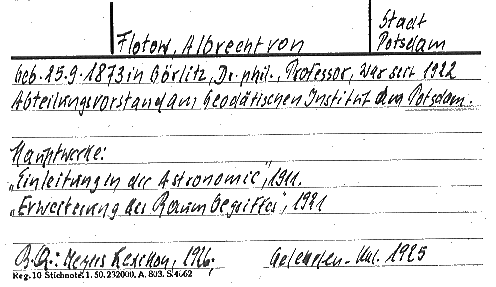 Flotow, Albrecht von
Stadt
Potsdam
Geb. 25.9.1873 in Görlitz, Dr. phil., Professor, war seit 1922
Abteilungsvorstand am Geodätischen Institut Potsdam.
Hauptwerke:
"Einleitung in der Astronomie", 1911.
"Erweiterung des Raumbegriffes", 1921
B.Q.: Meyers Lexikon, 1926. Gelehrten-Kal. 1925
Reg. 10 Stichnote 1. 50. 232000. A. 803. S.4662